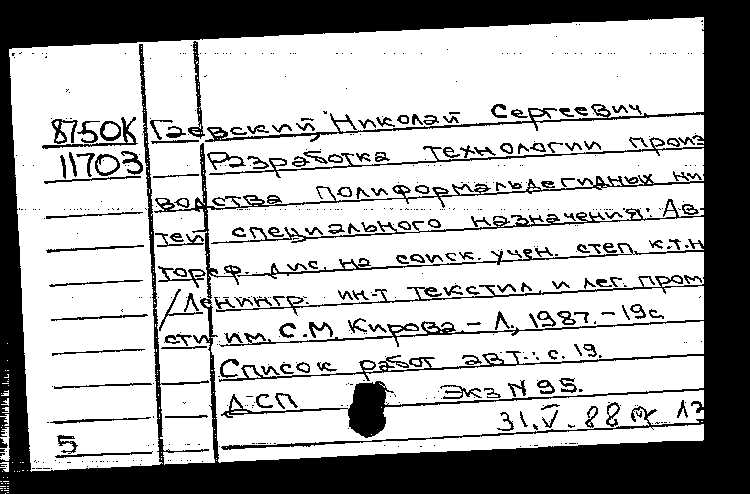 8750К Гаевский, Николай Сергеевич.
11703 Разработка технологии произ
водства полиформальдегидных ни-
тей специального назначения: Ав-
тореф. дис. на соиск. учен. степ. к.т.н
/Ленингр. ин-т текстил. и лег. пром-
сти им. С.М. Кирова. - Л., 1987. - 19с.
Список работ авт.: с. 19.
ДСП Экз N 95.
31.V.88
5